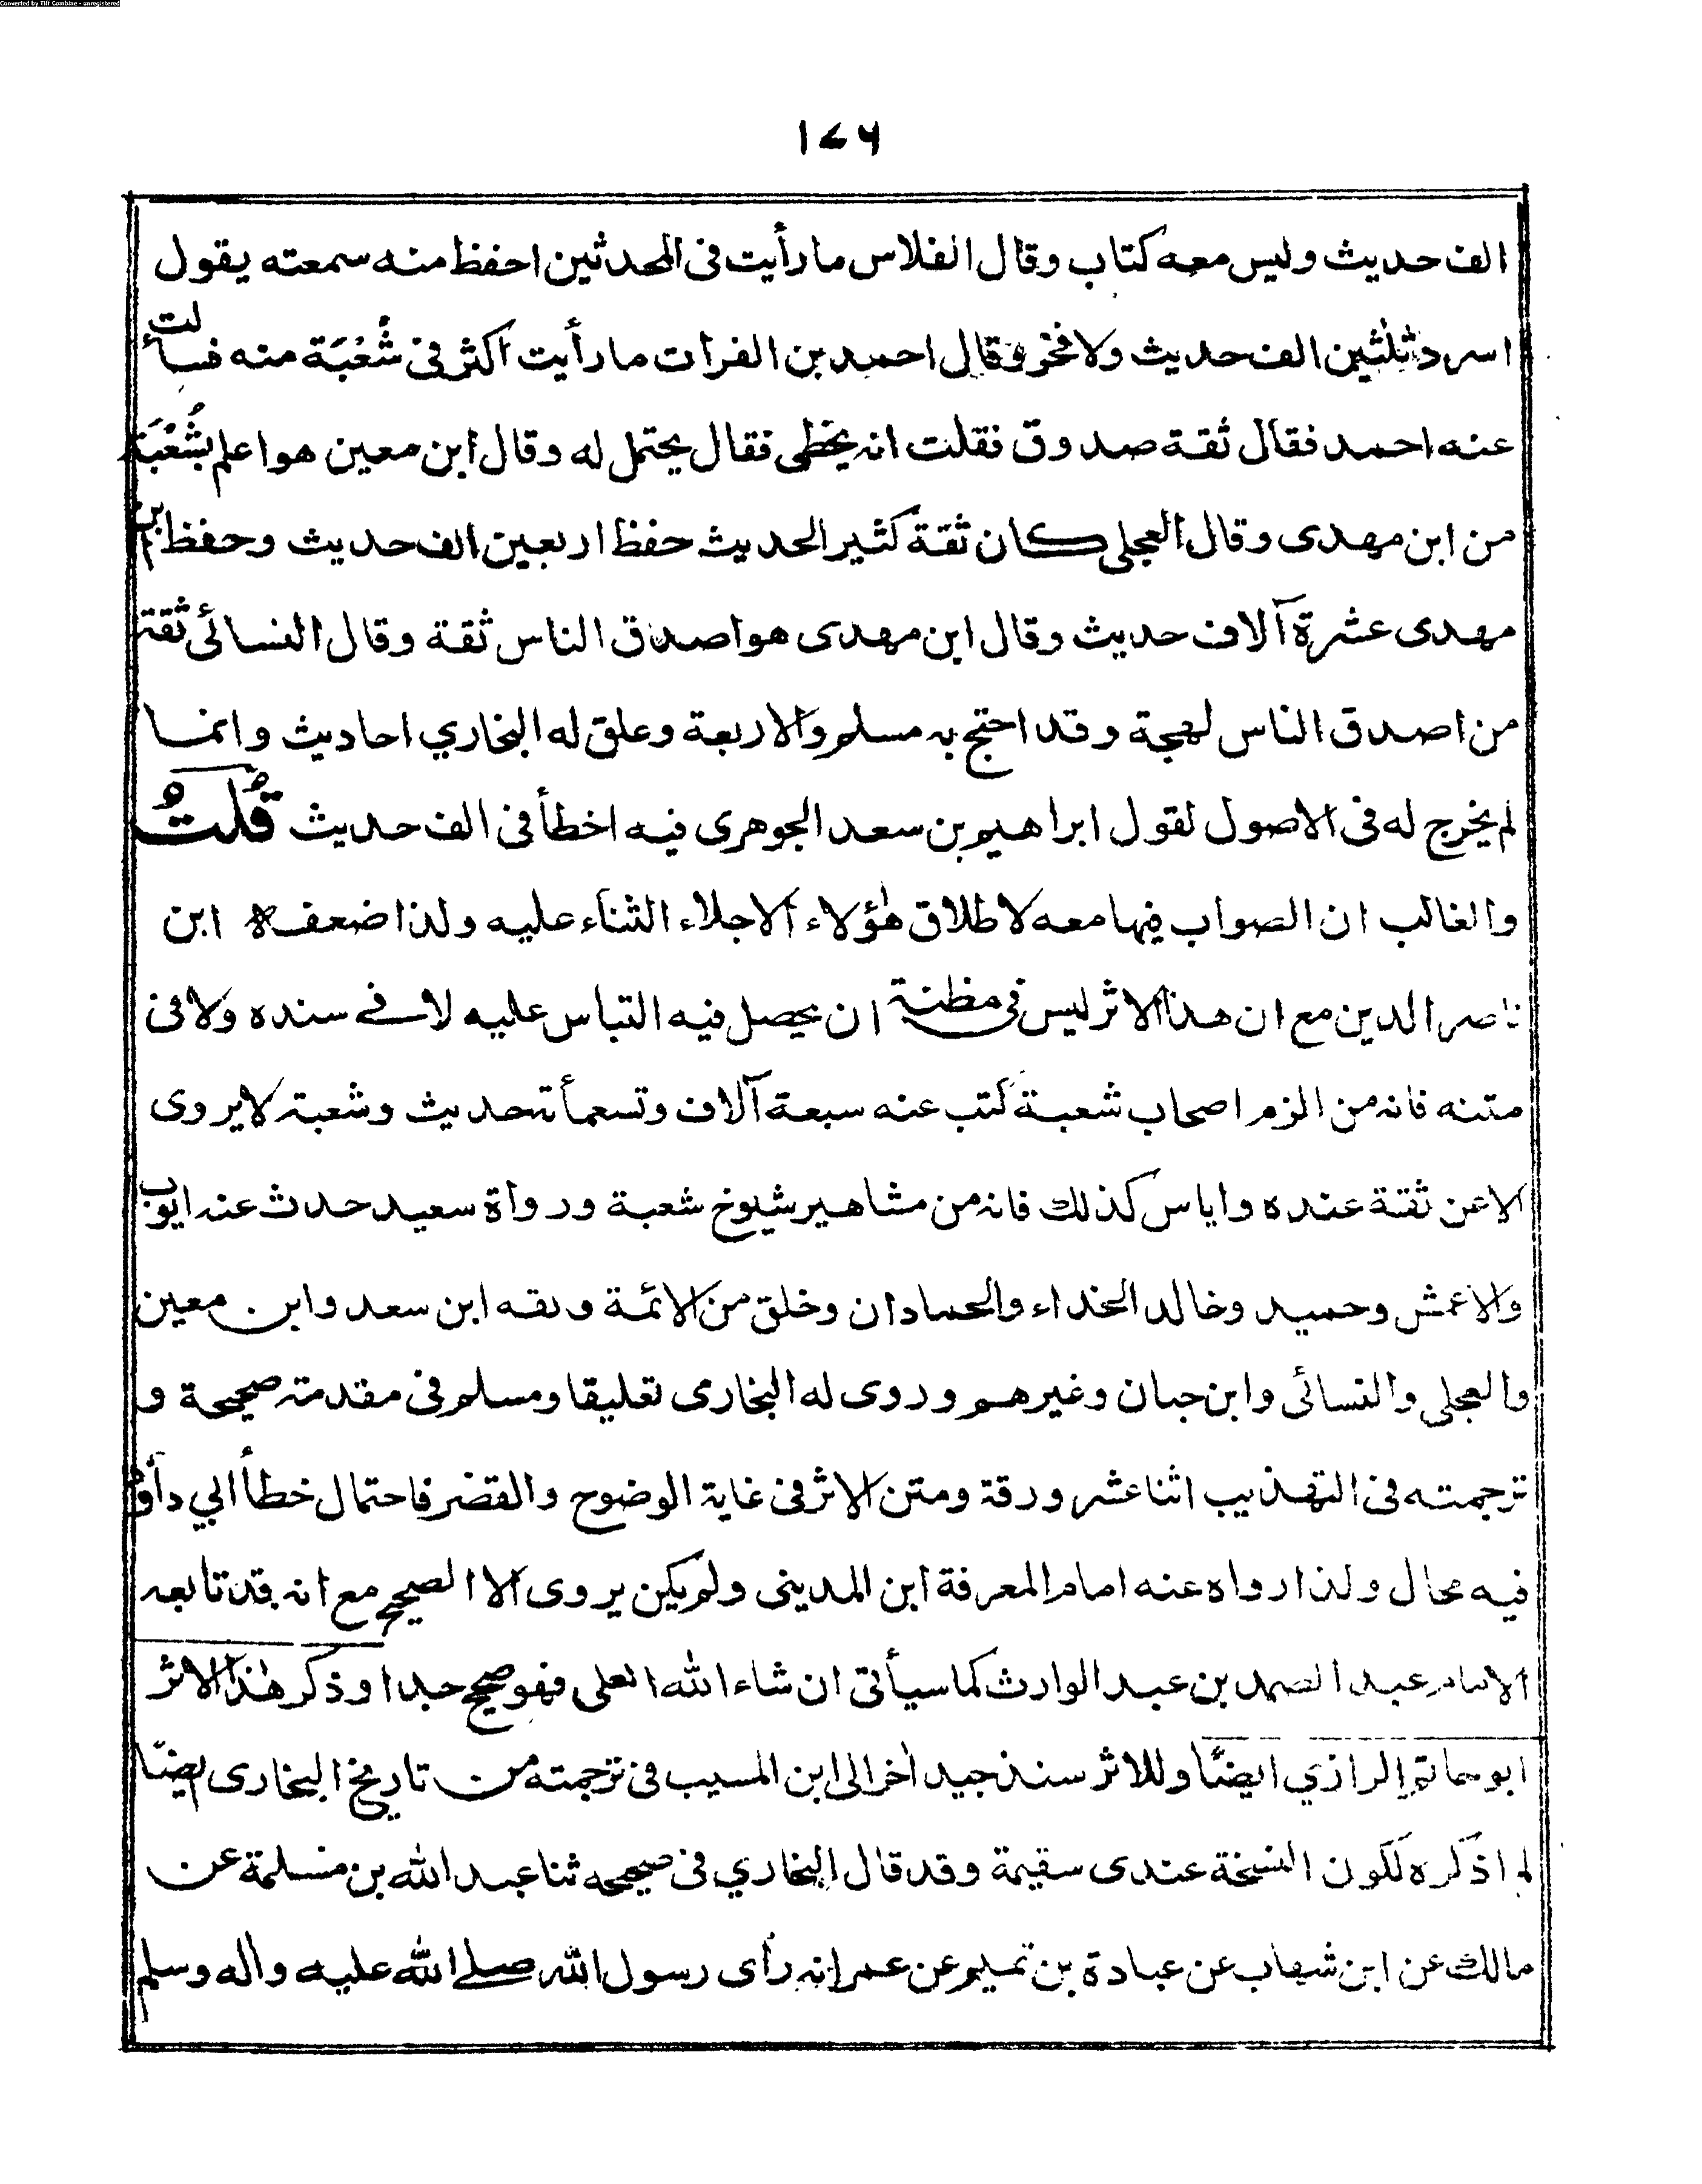 Converted by Tiff Combine - unregistered
۱۷۶
الف حديث وليس معه كتاب وقال الفلاس ما رأيت فى المحدثين احفظ منه سمعته يقول
اسرد ثلثين الف حديث ولا فخر وقال احمد بن الفرات ما رأيت اكثر فى شُعْبَة منه فسألت
عنه احمد فقال ثقة صدوق فقلت انه يخطى فقال يحتمل له وقال ابن معين هو اعلم بشُعْبَة
من ابن مهدى وقال العجلى كان ثقة كثير الحديث حفظ اربعين الف حديث وحفظ ابن
مهدى عشرة آلاف حديث وقال ابن مهدى هو اصدق الناس ثقة وقال النسائى ثقة
من اصدق الناس لهجة وقد احتج به مسلم والاربعة وعلق له البخاري احاديث وانما
لم يخرج له فى الاصول لقول ابراهيم بن سعد الجوهرى فيه اخطأ فى الف حديث قُلتُ
والغالب ان الصواب فيها معه لاطلاق هٰؤلاء الاجلاء الثناء عليه ولذا ضعفه ابن
ناصر الدين مع ان هذا الاثر ليس فى مظنة ان يحصل فيه التباس عليه لا فے سنده ولا فى
متنه فانه من الزم اصحاب شعبة كتب عنه سبعة آلاف وتسعمأته حديث وشعبة لا يروى
الا عن ثقة عنده واياس كذلك فانه من مشاهير شيوخ شعبة ورواة سعيد حدث عنه ايوب
والاعمش وحميد وخالد الحذاء والحمادان وخلق من الائمة وثقه ابن سعد وابن معين
والعجلى والنسائى وابن حبان وغيرهم وروى له البخارى تعليقا ومسلم فى مقدمته صحيحة و
ترجمته فى التهذيب اثنا عشر ورقة ومتن الاثر فى غاية الوضوح والقصر فاحتمال خطأ ابي داؤد
فيه محال ولذا رواه عنه امام المعرفة ابن المدينى ولم يكن يروى الا الصحيح مع انه قد تابعه
الامام عبد الصمد بن عبد الوارث كما سيأتى ان شاء الله العلى فهو صحيح جدا وذكر هٰذا الاثر
ابو حاتم الرازي ايضًا وللاثر سند جيد اٰخر الى ابن المسيب فى ترجمته من تاريخ البخارى ايضًا
لم اذكره لكون النسخة عندى سقيمة وقد قال البخاري فى صحيحه ثنا عبد الله بن مسلمة عن
مالك عن ابن شهاب عن عبادة بن تميم عن عمه انه رأى رسول الله صلے الله عليه واٰله وسلم